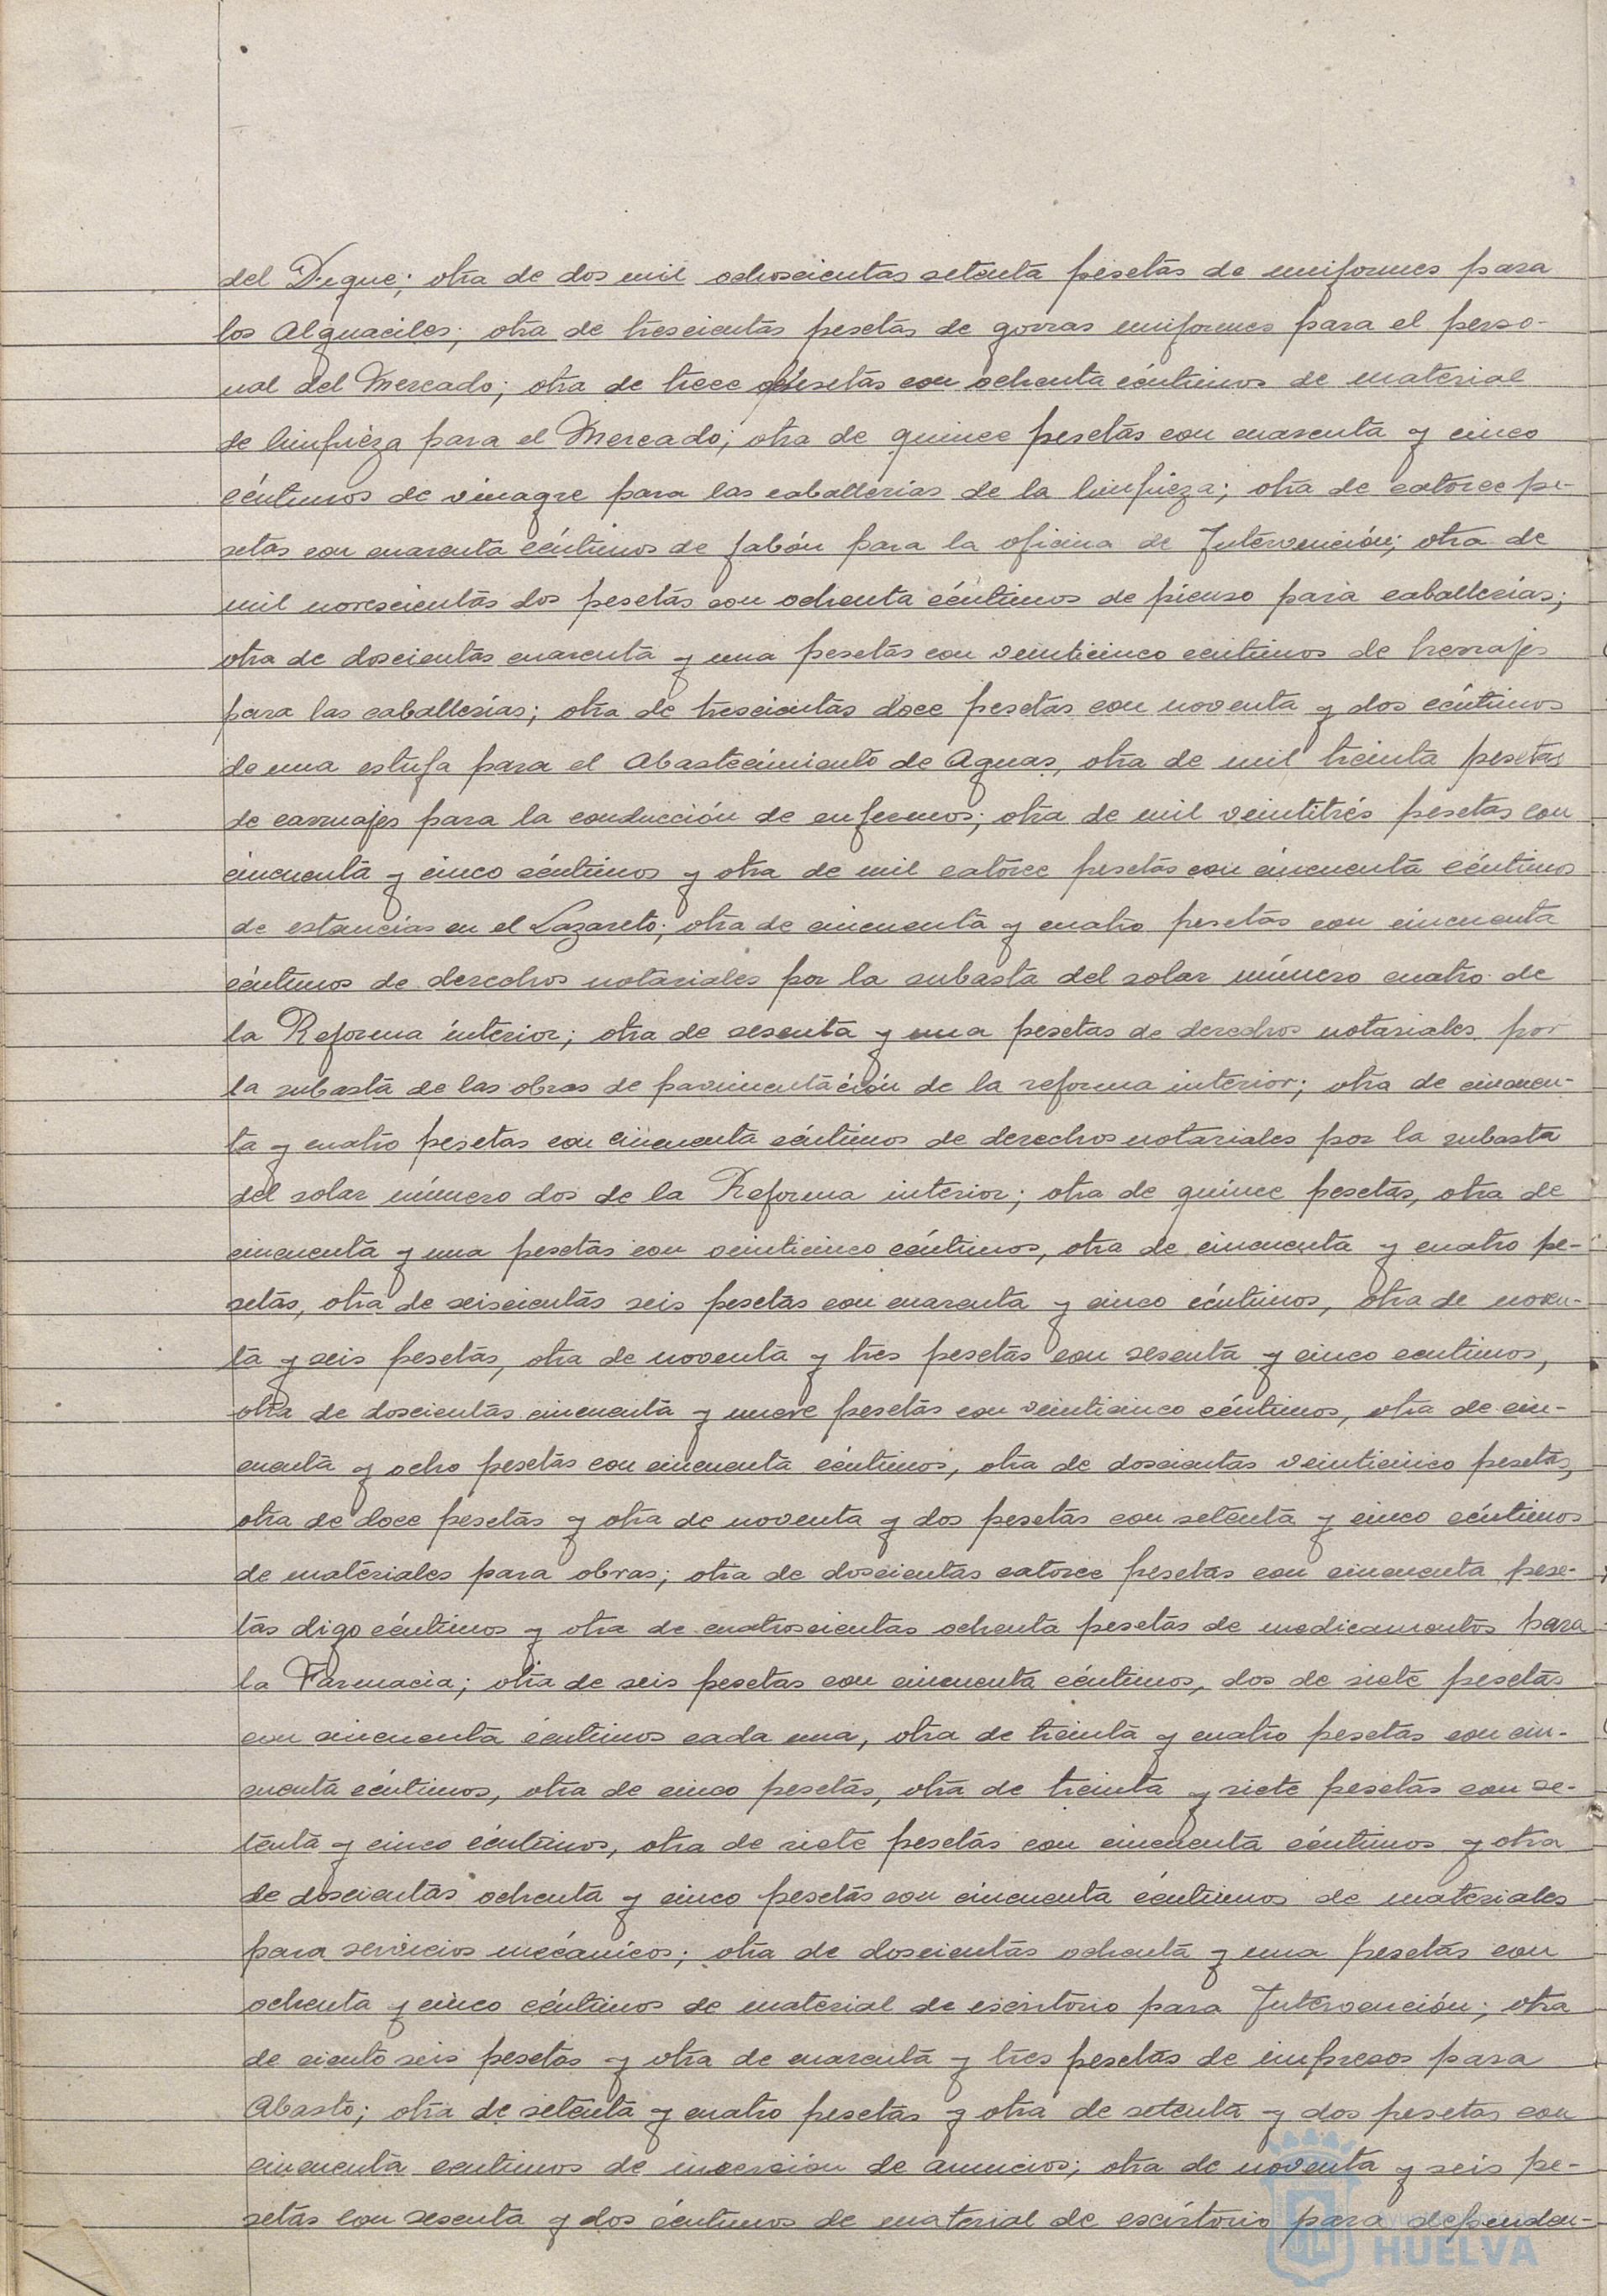 del Dique; otra de dos mil ochoscientas setenta pesetas de uniformes para
los Alguaciles; otra de trescientas pesetas de gorras uniformes para el perso-
nal del Mercado; otra de trece pesetas con ochenta céntimos de material
de limpieza para el Mercado; otra de quince pesetas con cuarenta y cinco
céntimos de vinagre para las caballerias de la limpieza; otra de catorce pe-
setas con cuarenta céntimos de jabón para la oficina de Intervención; otra de
mil novescientas dos pesetas con ochenta céntimos de pienso para caballerías;
otra de doscientas cuarenta y una pesetas con veinticinco centimos de herrajes
para las caballerías; otra de trescientas doce pesetas con noventa y dos céntimos
de una estufa para el Abastecimiento de Aguas, otra de mil treinta pesetas
de carruajes para la conducción de enfermos; otra de mil veintitrés pesetas con
cincuenta y cinco céntimos y otra de mil catorce pesetas con cincuenta céntimos
de estancias en el Lazareto; otra de cincuenta y cuatro pesetas con cincuenta
céntimos de derechos notariales por la subasta del solar número cuatro de
la Reforma interior; otra de sesenta y una pesetas de derechos notariales por
la subasta de las obras de pavimentación de la reforma interior; otra de cincuen-
ta y cuatro pesetas con cincuenta céntimos de derechos notariales por la subasta
del solar número dos de la Reforma interior; otra de quince pesetas, otra de
cincuenta y una pesetas con veinticinco céntimos, otra de cincuenta y cuatro pe-
setas, otra de seiscientas seis pesetas con cuarenta y cinco céntimos, otra de noven-
ta y seis pesetas, otra de noventa y tres pesetas con sesenta y cinco centimos,
otra de doscientas cincuenta y nueve pesetas con veinticinco céntimos, otra de cin-
cuenta y ocho pesetas con cincuenta céntimos, otra de doscientas veinticinco pesetas,
otra de doce pesetas y otra de noventa y dos pesetas con setenta y cinco céntimos
de materiales para obras; otra de doscientas catorce pesetas con cincuenta pese-
tas digo céntimos y otra de cuatroscientas ochenta pesetas de medicamentos para
la Farmacia; otra de seis pesetas con cincuenta céntimos, dos de siete pesetas
con cincuenta céntimos cada una, otra de treinta y cuatro pesetas con cin-
cuenta céntimos, otra de cinco pesetas, otra de treinta y siete pesetas con se-
tenta y cinco céntimos, otra de siete pesetas con cincuenta céntimos y otra
de doscientas ochenta y cinco pesetas con cincuenta céntimos de materiales
para servicios mecánicos; otra de doscientas ochenta y una pesetas con
ochenta y cinco céntimos de material de escritorio para Intervención; otra
de ciento seis pesetas y otra de cuarenta y tres pesetas de impresos para
Abasto; otra de setenta y cuatro pesetas y otra de setenta y dos pesetas con
cincuenta centimos de inserción de anuncios; otra de noventa y seis pe-
setas con sesenta y dos céntimos de material de escritorio para dependen-
HUELVA